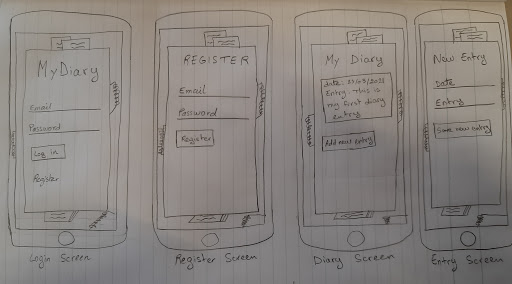 MyDiary
Email
Password
Log in
Register
Login Screen
REGISTER
Email
Password
Register
Register Screen
My Diary
Entry - this is
my first diary
entry
Add new entry
Diary Screen
New Entry
Date
Entry
Save new entry
Entry Screen